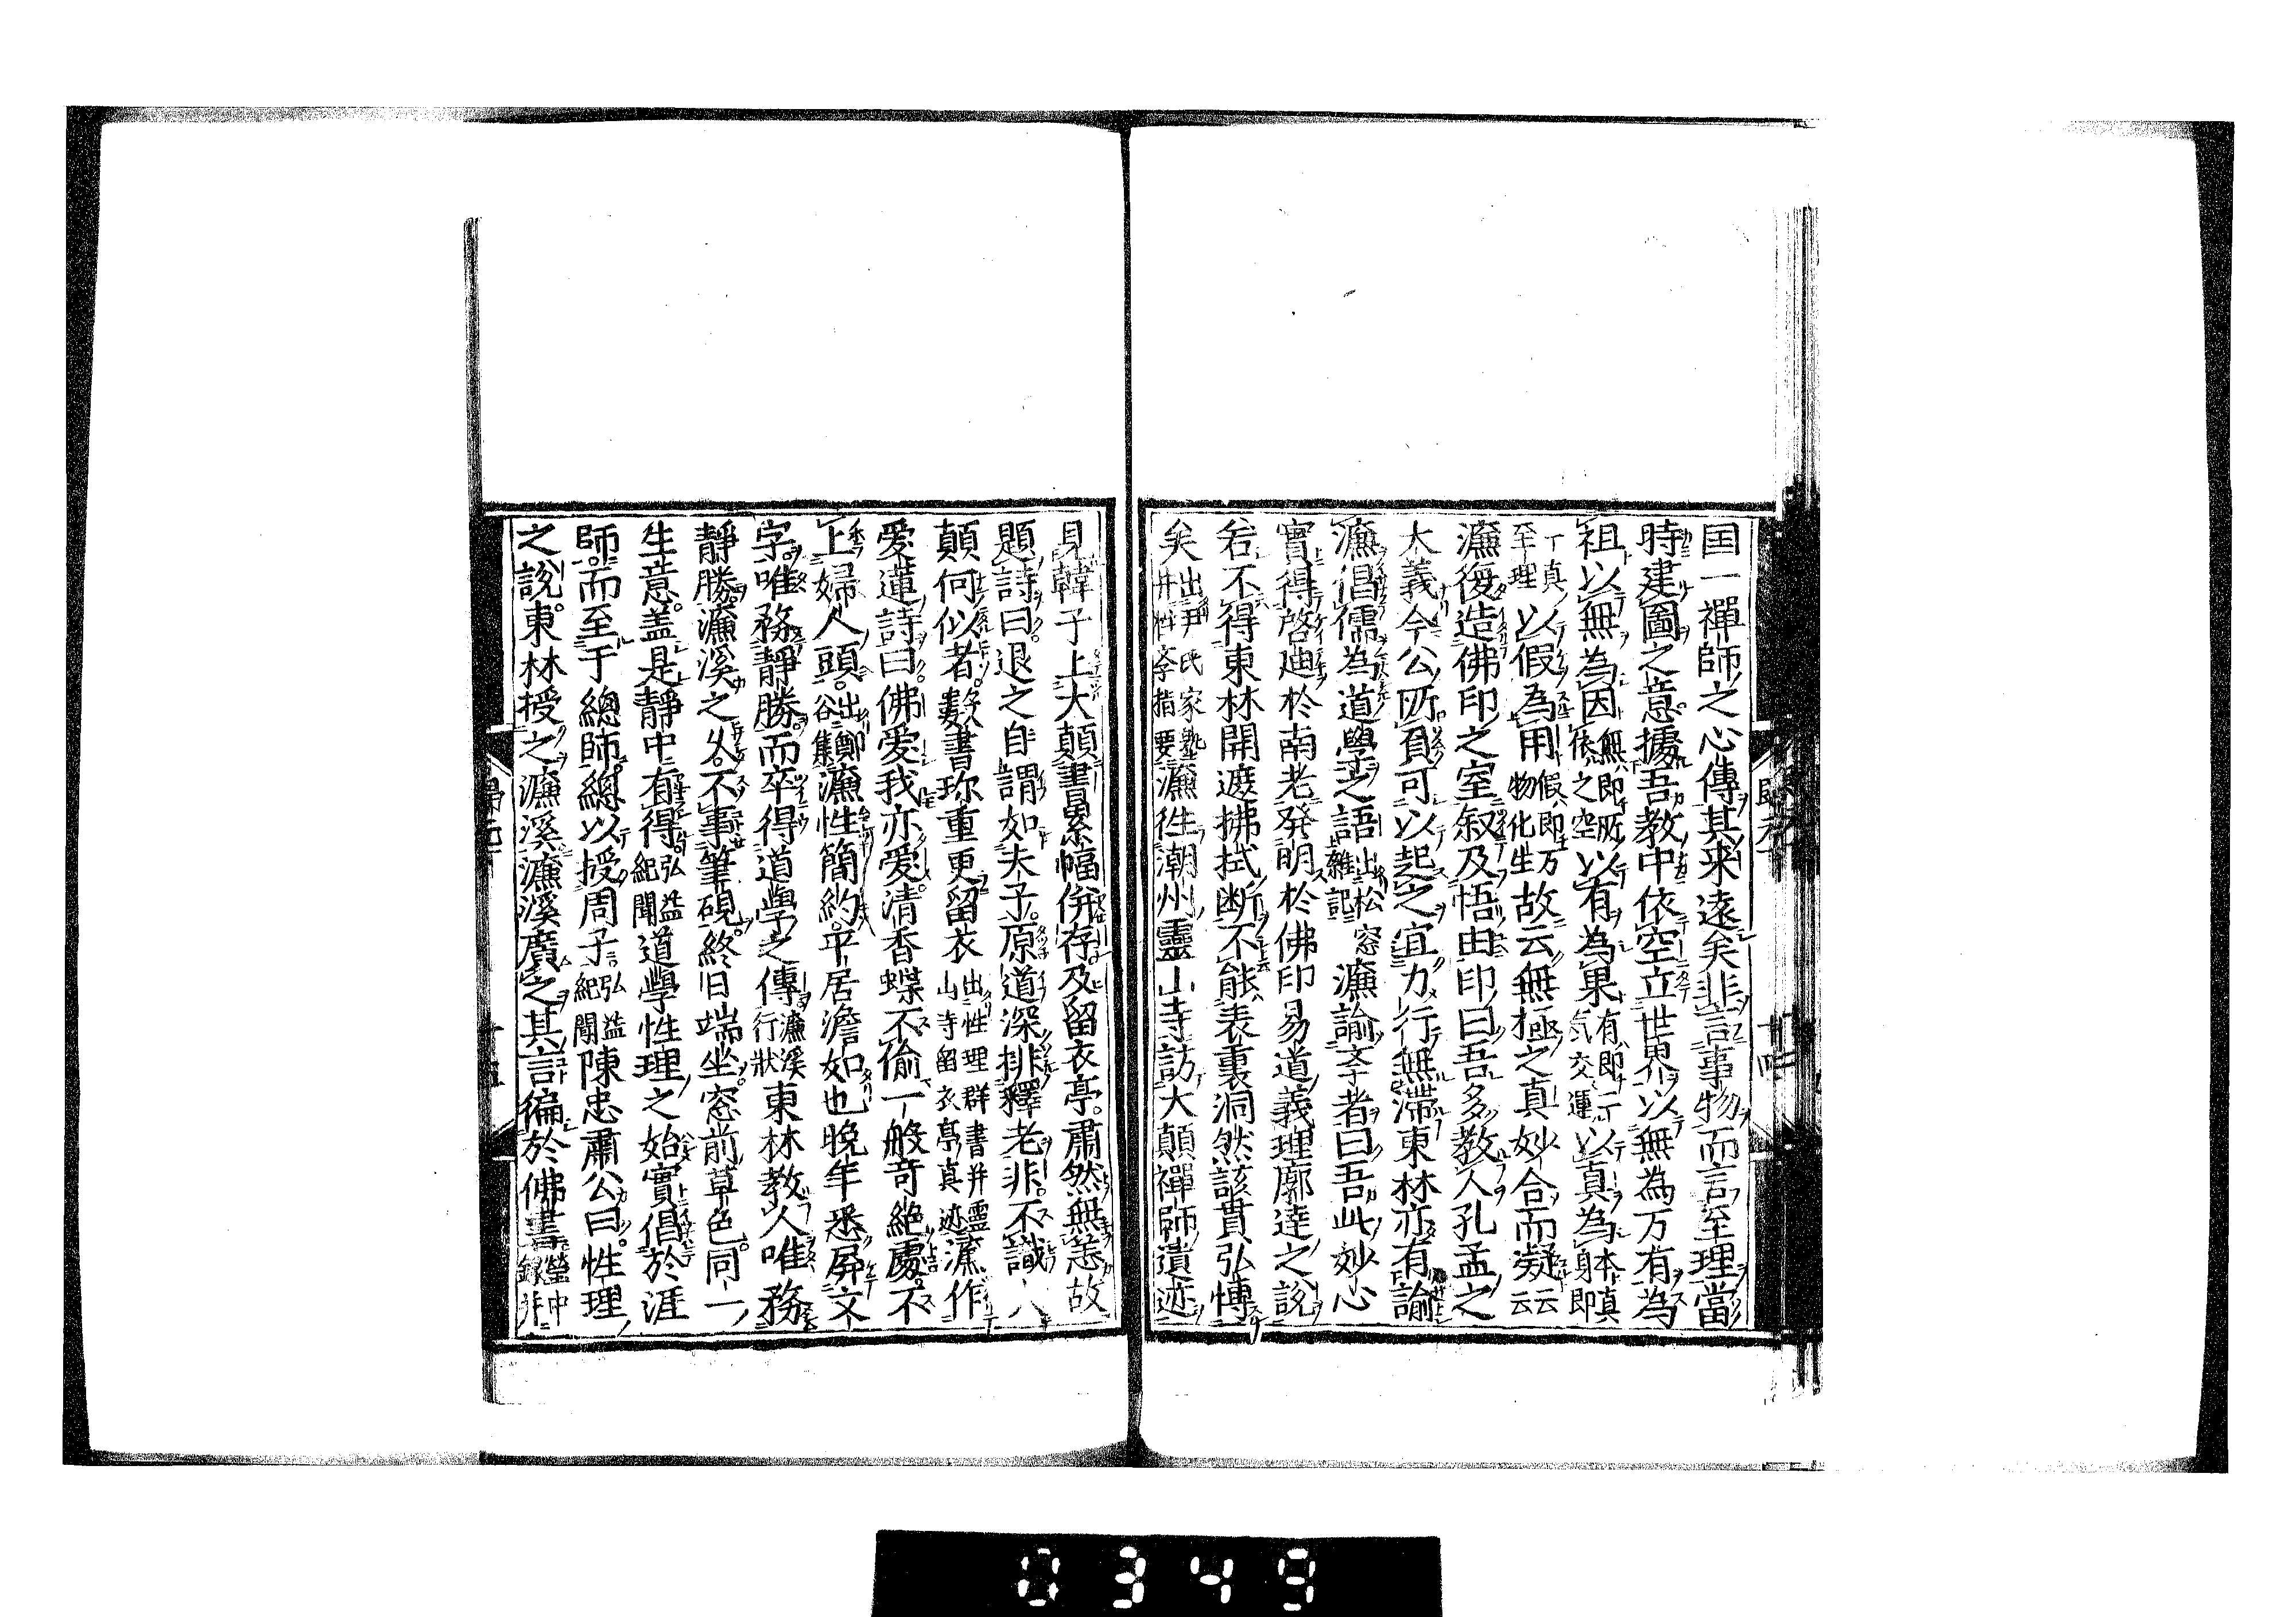 国一禪師之心傳其来遠矣非言事物而言至理當
時建圖之意據吾教中依空立世界以無為万有為
祖以無為因無即所依之空以有為果有即二气交運以真為本真身即
一真至理以假為用假即万物化生故云無極之真妙合而凝云云
濂復造佛印之室叙及悟由印曰吾多教人孔孟之
大義今公所負可以起之宜力行無滯東林亦有諭
濂倡儒為道學之語出松窓雜記濂諭孝者曰吾此妙心
實得啓迪於南老発明於佛印易道義理廓達之說
若不得東林開遮拂拭断不能表裏洞然該貫弘愽
矣出尹氏家塾并性孝指要濂徃潮州靈山寺訪大顛禪師遺迹
見韓子上大顛書累幅併存及留衣亭。肅然無恙故
題詩曰。退之自謂如夫子。原道深排釋老非。不識大
顛何似者。數書珎重更留衣出性理群書并靈山寺留衣亭真迹濂作
愛蓮詩曰。佛愛我亦愛。清香蝶不偷。一般奇絶處。不
上婦人頭。出鄭谷集濂性簡約。平居澹如也晚年悉屏文
字。唯務靜勝。而卒得道學之傳濂溪行狀東林教人唯務
靜勝。濂溪之久。不事筆硯。終日端坐。窓前草色。同一
生意。盖是靜中有得。弘益紀聞道學性理之始實倡於涯
師。而至于總師。總以授周子。弘益紀聞陳忠肅公曰。性理
之說。東林授之濂溪濂溪廣之其言徧於佛書瑩中録并
0349